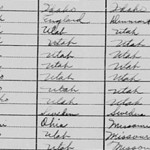 Idaho Idaho
England Denmark
Utah Utah
Utah Utah
Utah Utah
Utah Utah
Utah Utah
Utah Utah
Utah Utah
Sweden Sweden
Ohio Missouri
Utah Missouri
Utah Missouri